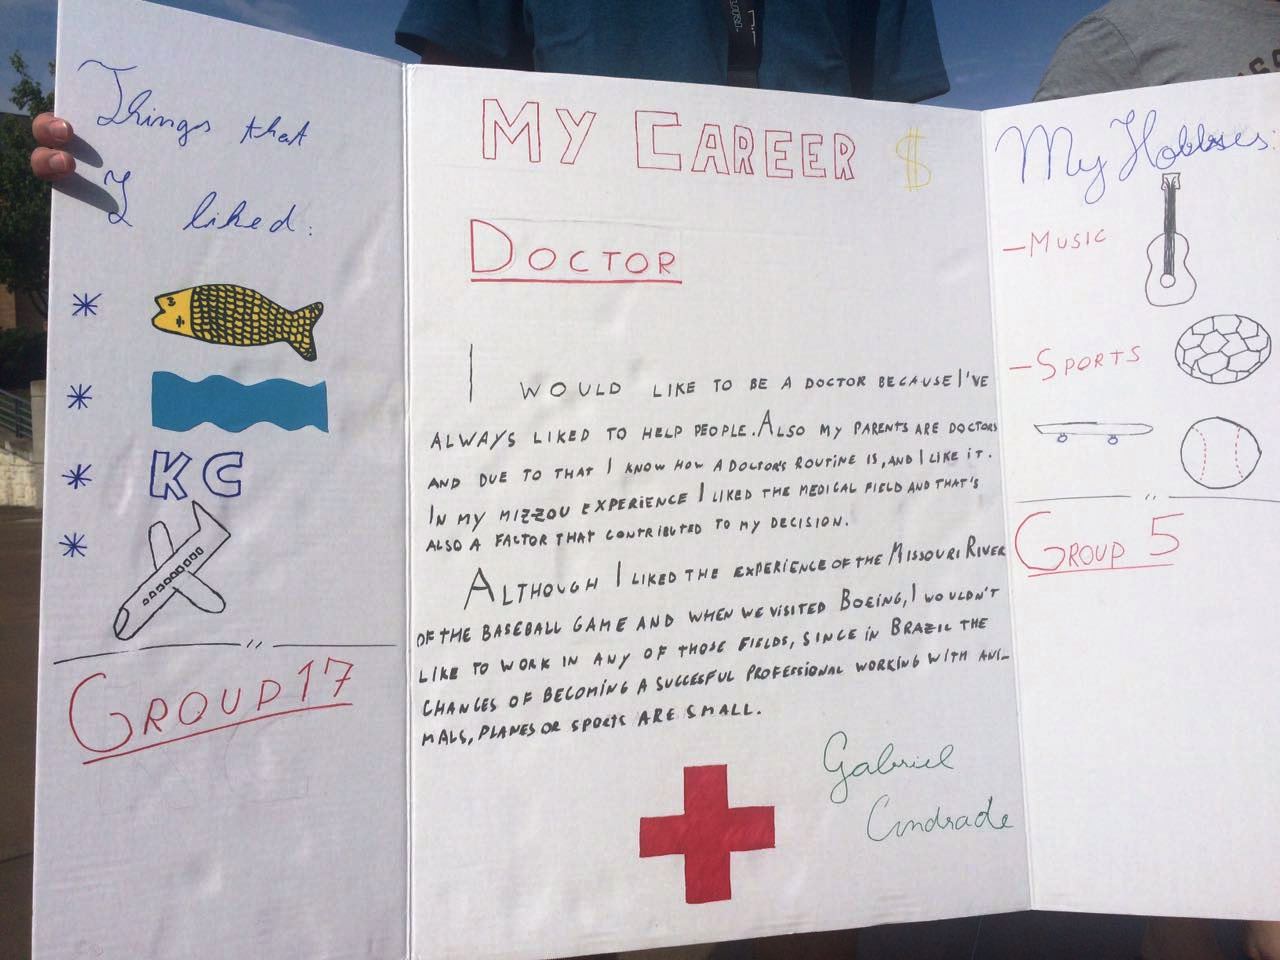 Things that
I liked:
KC
GROUP 17
MY CAREER $
DOCTOR
I WOULD LIKE TO BE A DOCTOR BECAUSE I'VE
ALWAYS LIKED TO HELP PEOPLE. ALSO MY PARENTS ARE DOCTORS
AND DUE TO THAT I KNOW HOW A DOCTOR'S ROUTINE IS, AND I LIKE IT.
IN MY MIZZOU EXPERIENCE I LIKED THE MEDICAL FIELD AND THAT'S
ALSO A FACTOR THAT CONTRIBUTED TO MY DECISION.
ALTHOUGH I LIKED THE EXPERIENCE OF THE MISSOURI RIVER
OF THE BASEBALL GAME AND WHEN WE VISITED BOEING, I WOULDN'T
LIKE TO WORK IN ANY OF THOSE FIELDS, SINCE IN BRAZIL THE
CHANCES OF BECOMING A SUCCESFUL PROFESSIONAL WORKING WITH ANI-
MALS, PLANES OR SPORTS ARE SMALL.
Gabriel
Andrade
My Hobbies:
- MUSIC
- SPORTS
GROUP 5